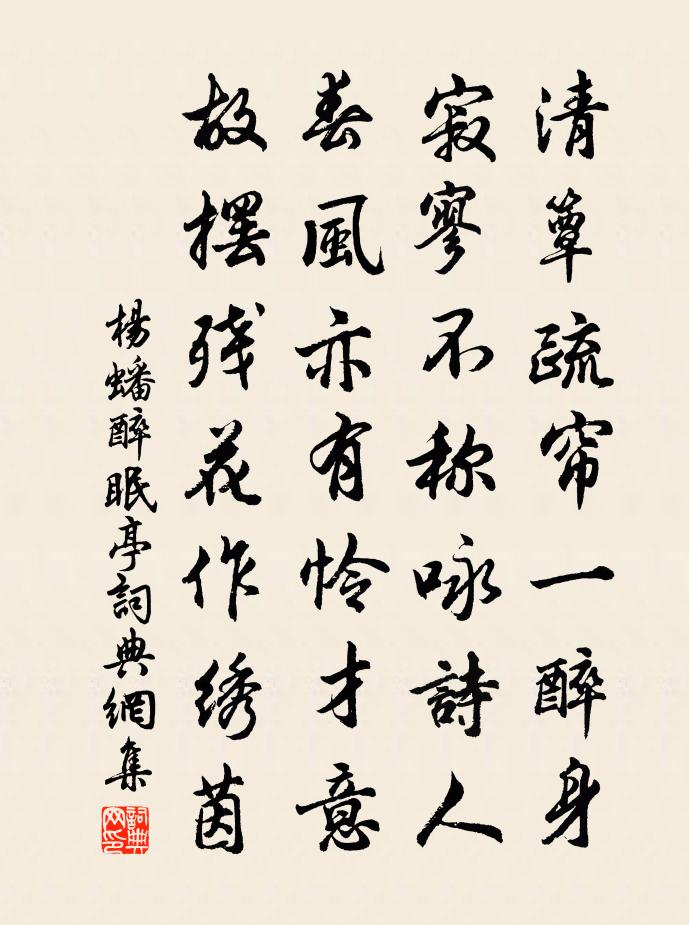 清簟疏帘一醉身
寂寥不称咏詩人
春風亦有怜才意
故摆残花作绣茵
楊蟠醉眠亭詞典網集
詞典网印